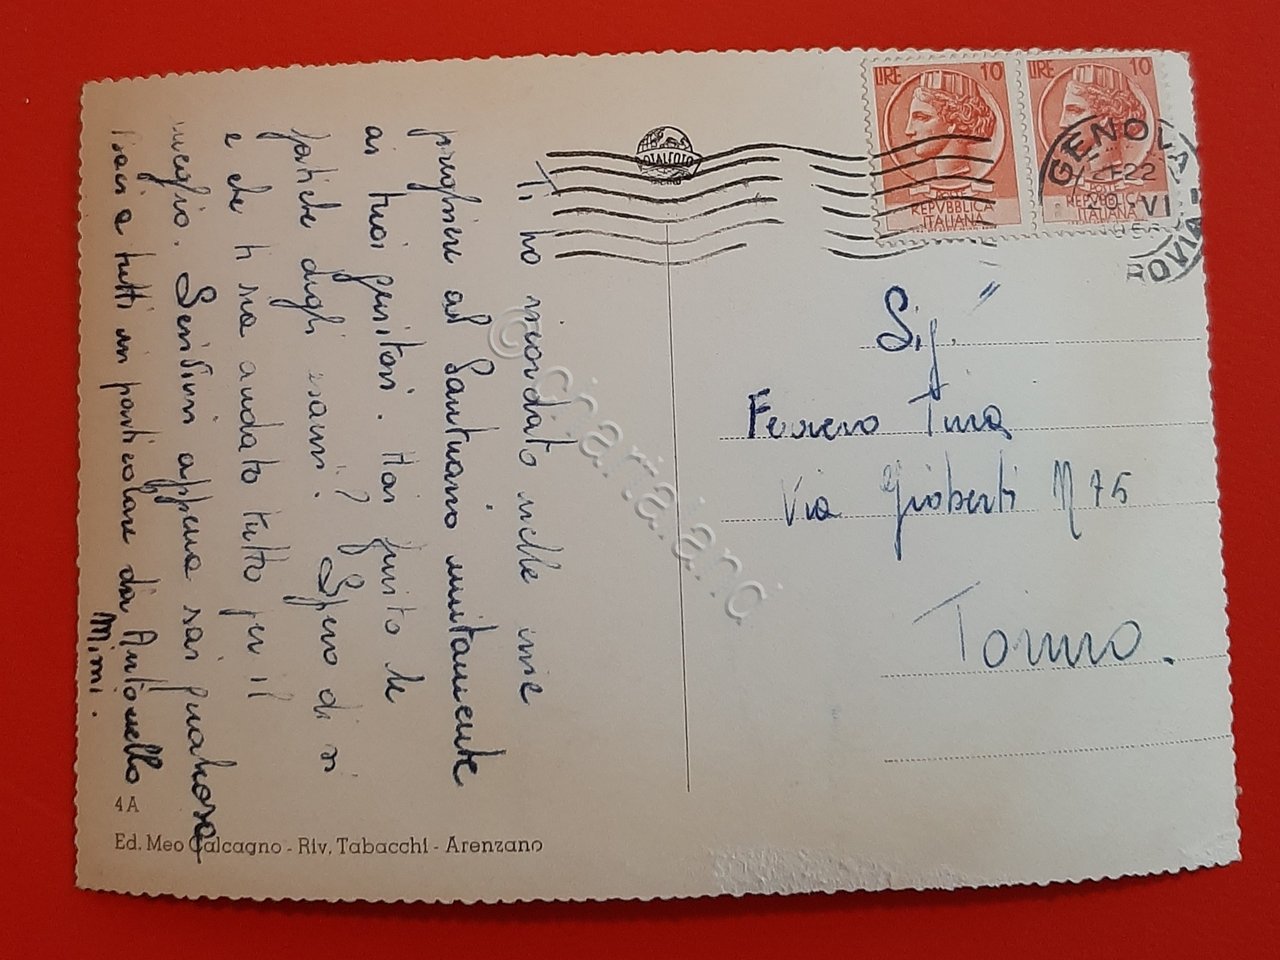 Ti ho ricordato nelle mie
preghiere al Santuario unitamente
ai tuoi genitori. Hai finito le
fatiche degli esami? Spero di sì
e che ti sia andato tutto per il
meglio. Scrivimi appena sai qualcosa
Baci a tutti in particolare da Antonello
Mimi.
4 A
Ed. Meo Calcagno - Riv. Tabacchi - Arenzano
LIRE 10
POSTE
REPVBBLICA
ITALIANA
LIRE 10
POSTE
REPVBBLICA
ITALIANA
GENOVA
22
20 VI
FERROVIA
Sig.
Ferrero Tina
Via Gioberti N 75
Torino.
© chartaland